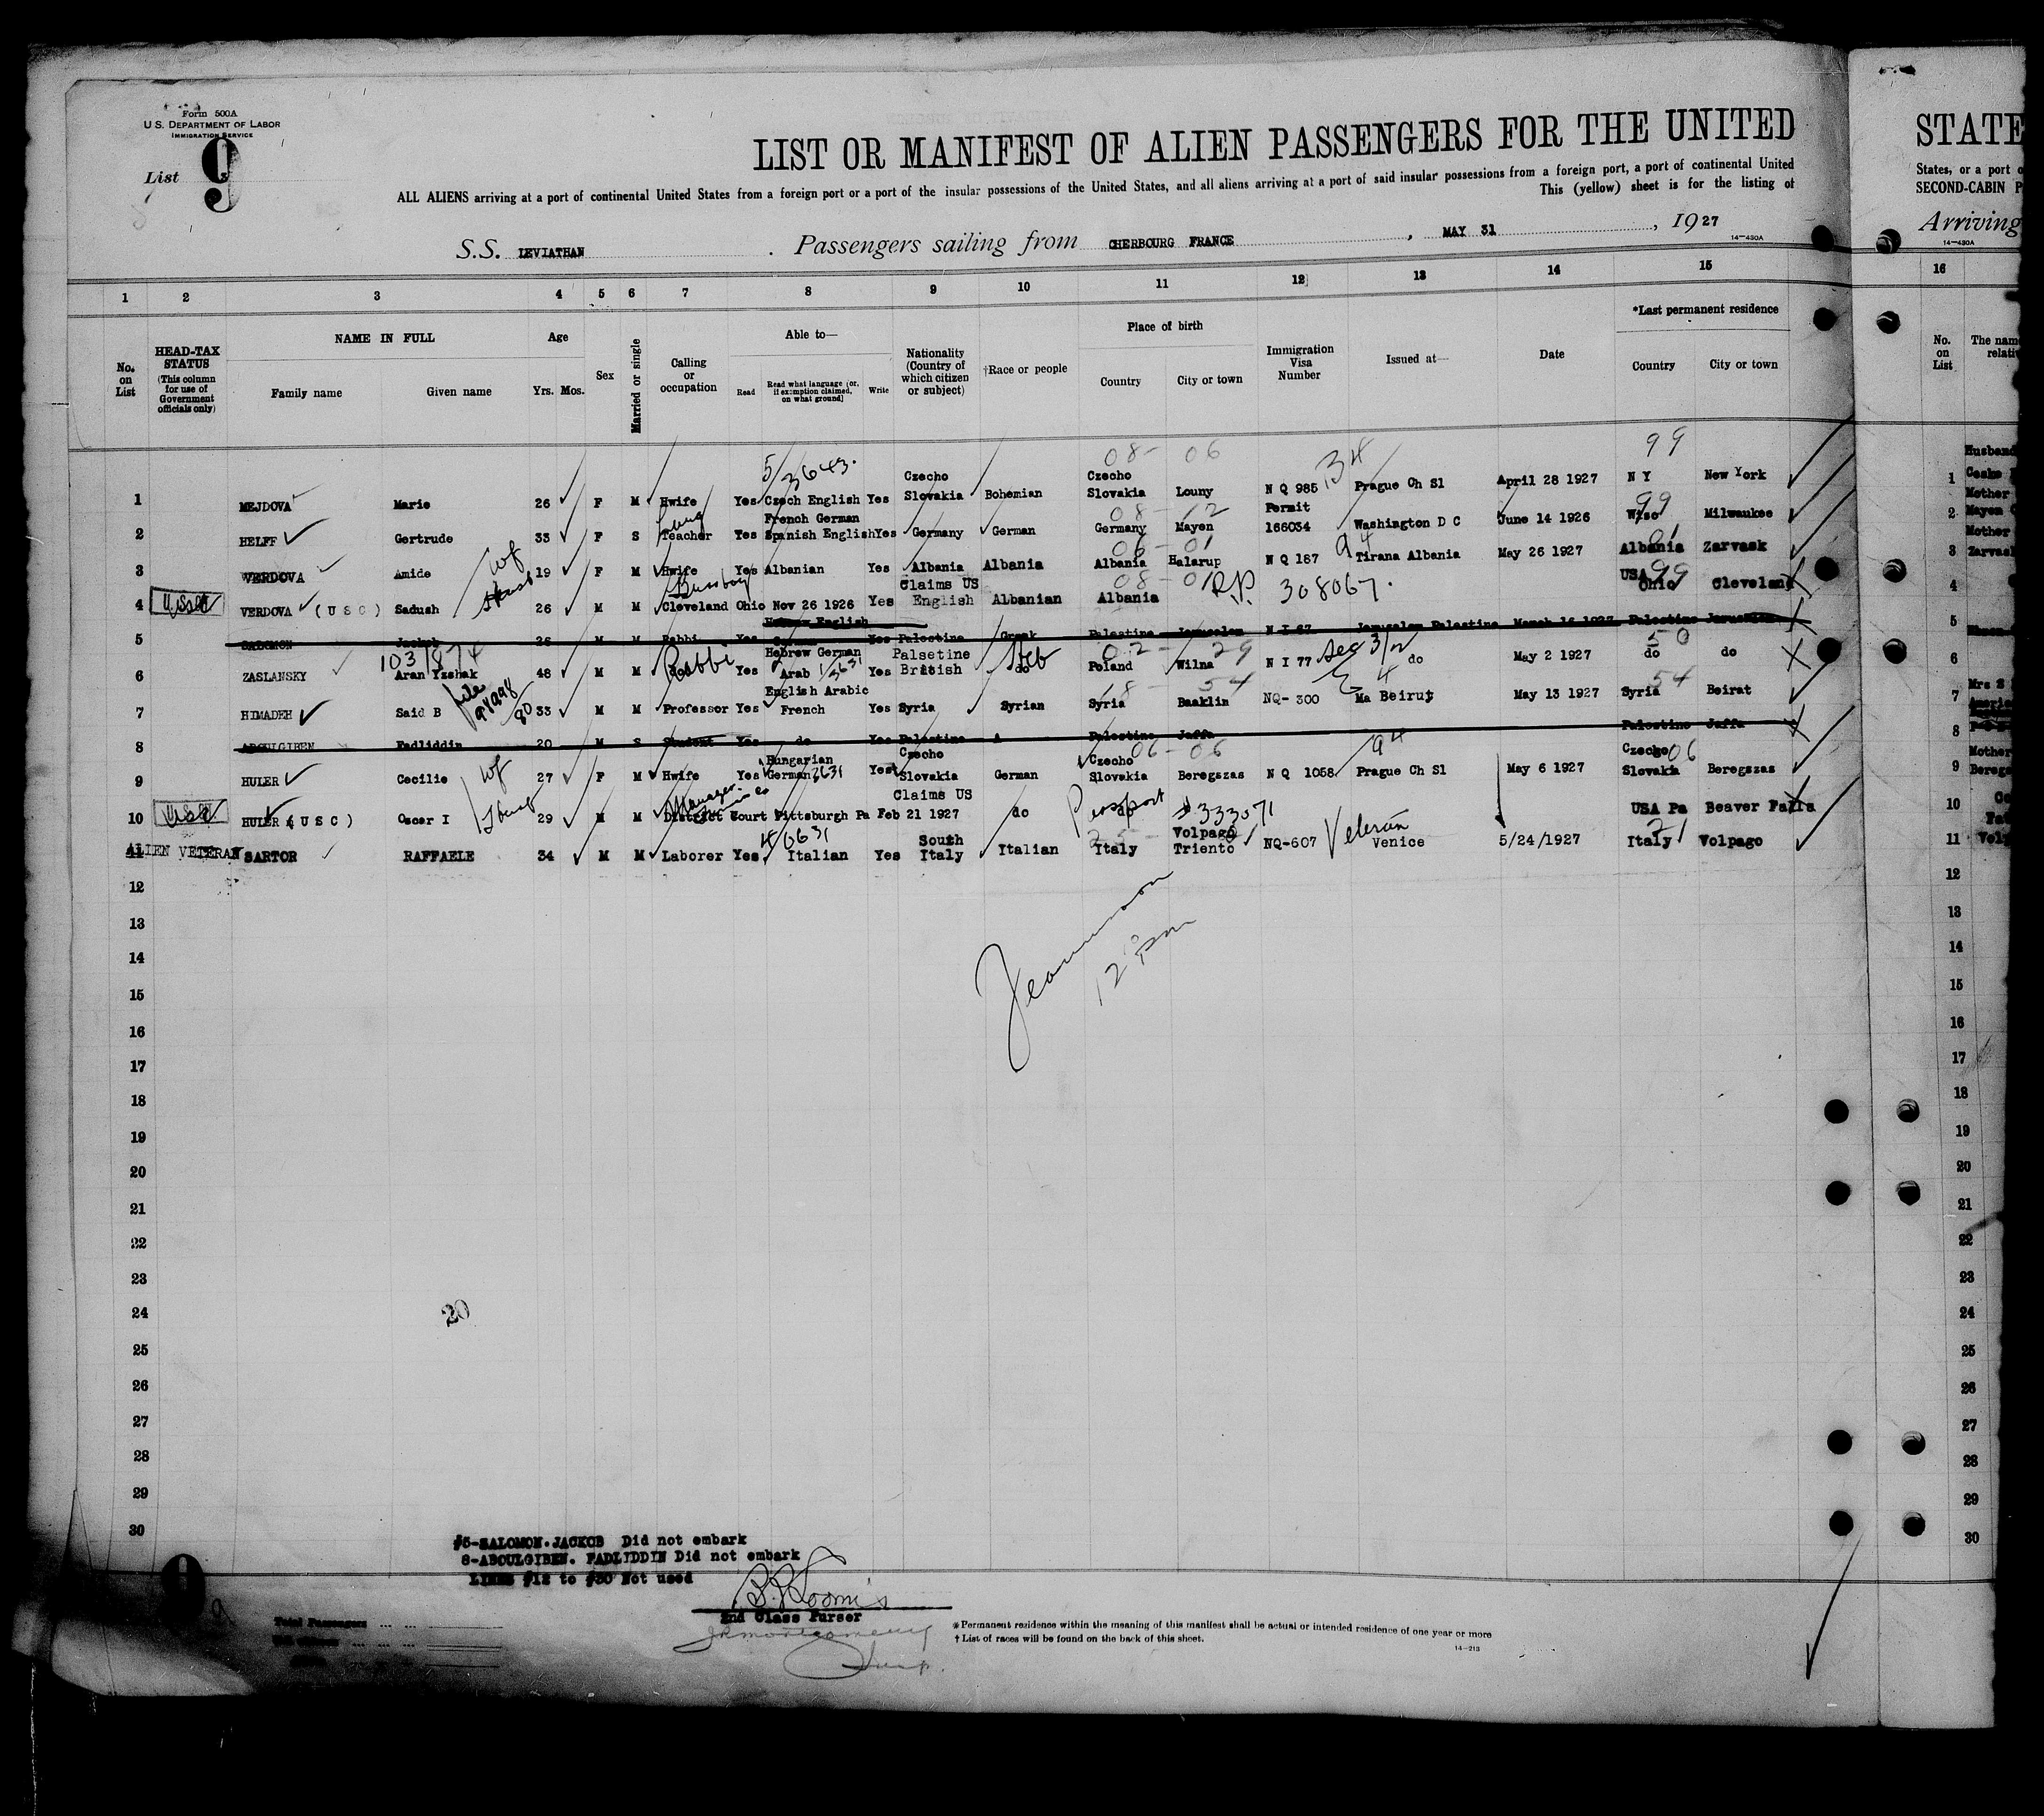 Form 500A
U.S. DEPARTMENT OF LABOR
IMMIGRATION SERVICE
List 9
LIST OR MANIFEST OF ALIEN PASSENGERS FOR THE UNITED
STATE
ALL ALIENS arriving at a port of continental United States from a foreign port or a port of the insular possessions of the United States, and all aliens arriving at a port of said insular possessions from a foreign port, a port of continental United
States, or a port o
This (yellow) sheet is for the listing of
SECOND-CABIN P
S.S. LEVIATHAN . Passengers sailing from CHERBOURG FRANCE , MAY 31 , 1927
Arriving
14-430A
14-430A
1 2 3 4 5 6 7 8 9 10 11 12 13 14 15 16
No. on List
HEAD-TAX STATUS (This column for use of Government officials only)
NAME IN FULL Family name Given name
Age Yrs. Mos.
Sex
Married or single
Calling or occupation
Able to— Read Read what language [or, if exemption claimed, on what ground] Write
Nationality (Country of which citizen or subject)
†Race or people
Place of birth Country City or town
Immigration Visa Number
Issued at—
Date
*Last permanent residence Country City or town
No. on List
The nam
relati
5/3643. 08- 06 34 99
1 MEJDOVA Marie 26 F M Hwife Yes Czech English Yes Czecho Slovakia Bohemian Czecho Slovakia Louny N Q 985 Prague Ch Sl April 28 1927 N Y New York
08-12 99
2 HELFF Gertrude 33 F S Teacher Yes French German Spanish English Yes Germany German Germany Mayen Permit 166034 Washington D C June 14 1926 Wisc Milwaukee
wf 06-01 94 01
3 VERDOVA Amide 19 F M Hwife Yes Albanian Yes Albania Albania Albania Halarup N Q 187 Tirana Albania May 26 1927 Albania Zarvask
Husb Busboy 08-01 R.P. 308067. 99
4 USC VERDOVA (USC) Sadush 26 M M Cleveland Ohio Nov 26 1926 Yes Claims US English Albanian Albania USA Ohio Cleveland
5 SALOMON Jackob 26 M M Rabbi Yes Hebrew English German Yes Palestine Greek Palestine Jerusalem N I 67 Jerusalem Palestine March 16 1927 Palestine Jerusalem
103/874 Rabbi 1/3631 Heb 02- 29 Sec 3/2 50
6 ZASLANSKY Aran Yzshak 48 M M Yes Hebrew German Arab Yes Palsetine British do Poland Wilna N I 77 do May 2 1927 do do
file 94998/80 18- 54 4 54
7 HIMADEH Said B 33 M M Professor Yes English Arabic French Yes Syria Syrian Syria Baaklin NQ- 300 Ma Beirut May 13 1927 Syria Beirat
8 ABOULGIBEN Fadliddin 20 M S Student Yes do Yes Palestine A Palestine Jaffa Palestine Jaffa
wf 3631 06-06 94 06
9 HULER Cecilie 27 F M Hwife Yes Hungarian German Yes Czecho Slovakia German Czecho Slovakia Beregszas N Q 1058 Prague Ch Sl May 6 1927 Czecho Slovakia Beregszas
Husb Manager Passport #333071
10 USC HULER (USC) Oscar I 29 M M District Court Pittsburgh Pa Feb 21 1927 Claims US do do USA Pa Beaver Falls
4/0631 Veteran 21
11 ALIEN VETERAN SARTOR RAFFAELE 34 M M Laborer Yes Italian Yes South Italy Italian Italy Volpago Triento NQ-607 Venice 5/24/1927 Italy Volpago
12
13
14
15
16
17
18
19
20
21
22
23
24
20
25
26
27
28
29
30
12 pm
Husband
Mother
Mayen
Mother
Zarvask
Mrs S
Americ
Mother
Beregs
Volp
1
2
3
4
5
6
7
8
9
10
11
12
13
14
15
16
17
18
19
20
21
22
23
24
25
26
27
28
29
30
#5-SALOMON.JACKOB Did not embark
8-ABOULGIBEN. FADLIDDIN Did not embark
LINES #12 to #30 Not used
B.P. Loomis
2nd Class Purser
J.R. Montgomery
Surg.
9
Total Passengers
*Permanent residence within the meaning of this manifest shall be actual or intended residence of one year or more
†List of races will be found on the back of this sheet.
14-213